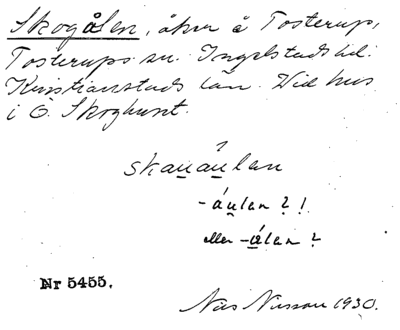 Skogålen, åker å Tosterup,
Tosterups sn. Ingelstads hd.
Kristianstads län. Vid hus
i Ö. Skoghuset.
?
skau̲áu̲len
-áu̲len ? !
eller -á̲len ?
Nr 5455.
Nils Nilsson 1930.